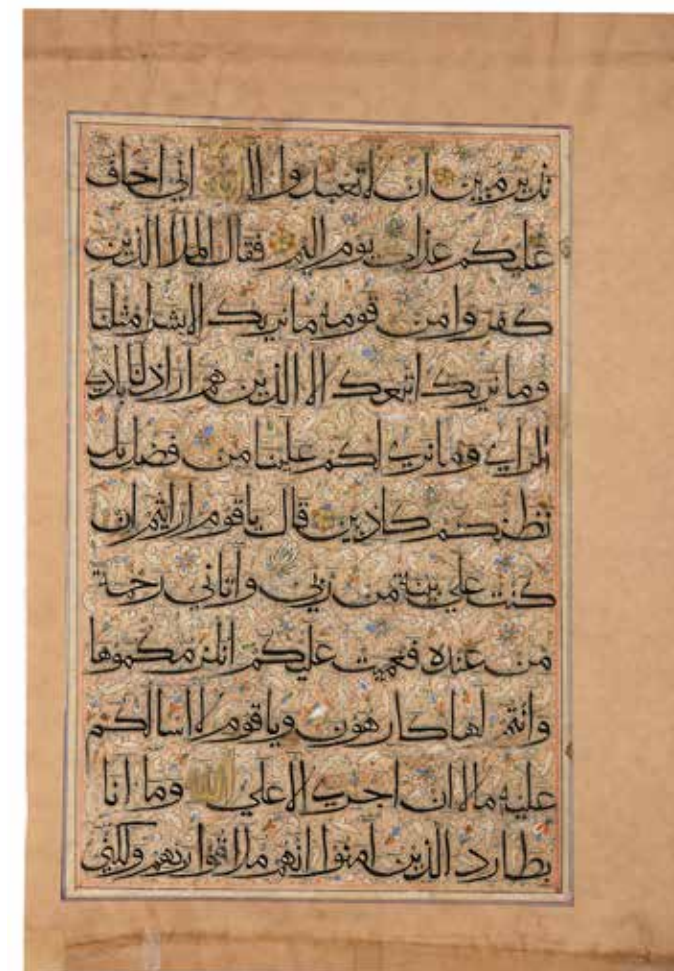 نذير مبين ان لا تعبدوا الا الله اني اخاف
عليكم عذاب يوم اليم فقال الملا الذين
كفروا من قومه ما نريك الا بشرا مثلنا
وما نريك اتبعك الا الذين هم اراذلنا بادي
الراي وما نري لكم علينا من فضل بل
نظنكم كاذبين قال يا قوم ارايتم ان
كنت علي بينة من ربي وآتاني رحمة
من عنده فعميت عليكم انلزمكموها
وانتم لها كارهون ويا قوم لا اسالكم
عليه مالا ان اجري الا علي الله وما انا
بطارد الذين امنوا انهم ملاقوا ربهم ولكني